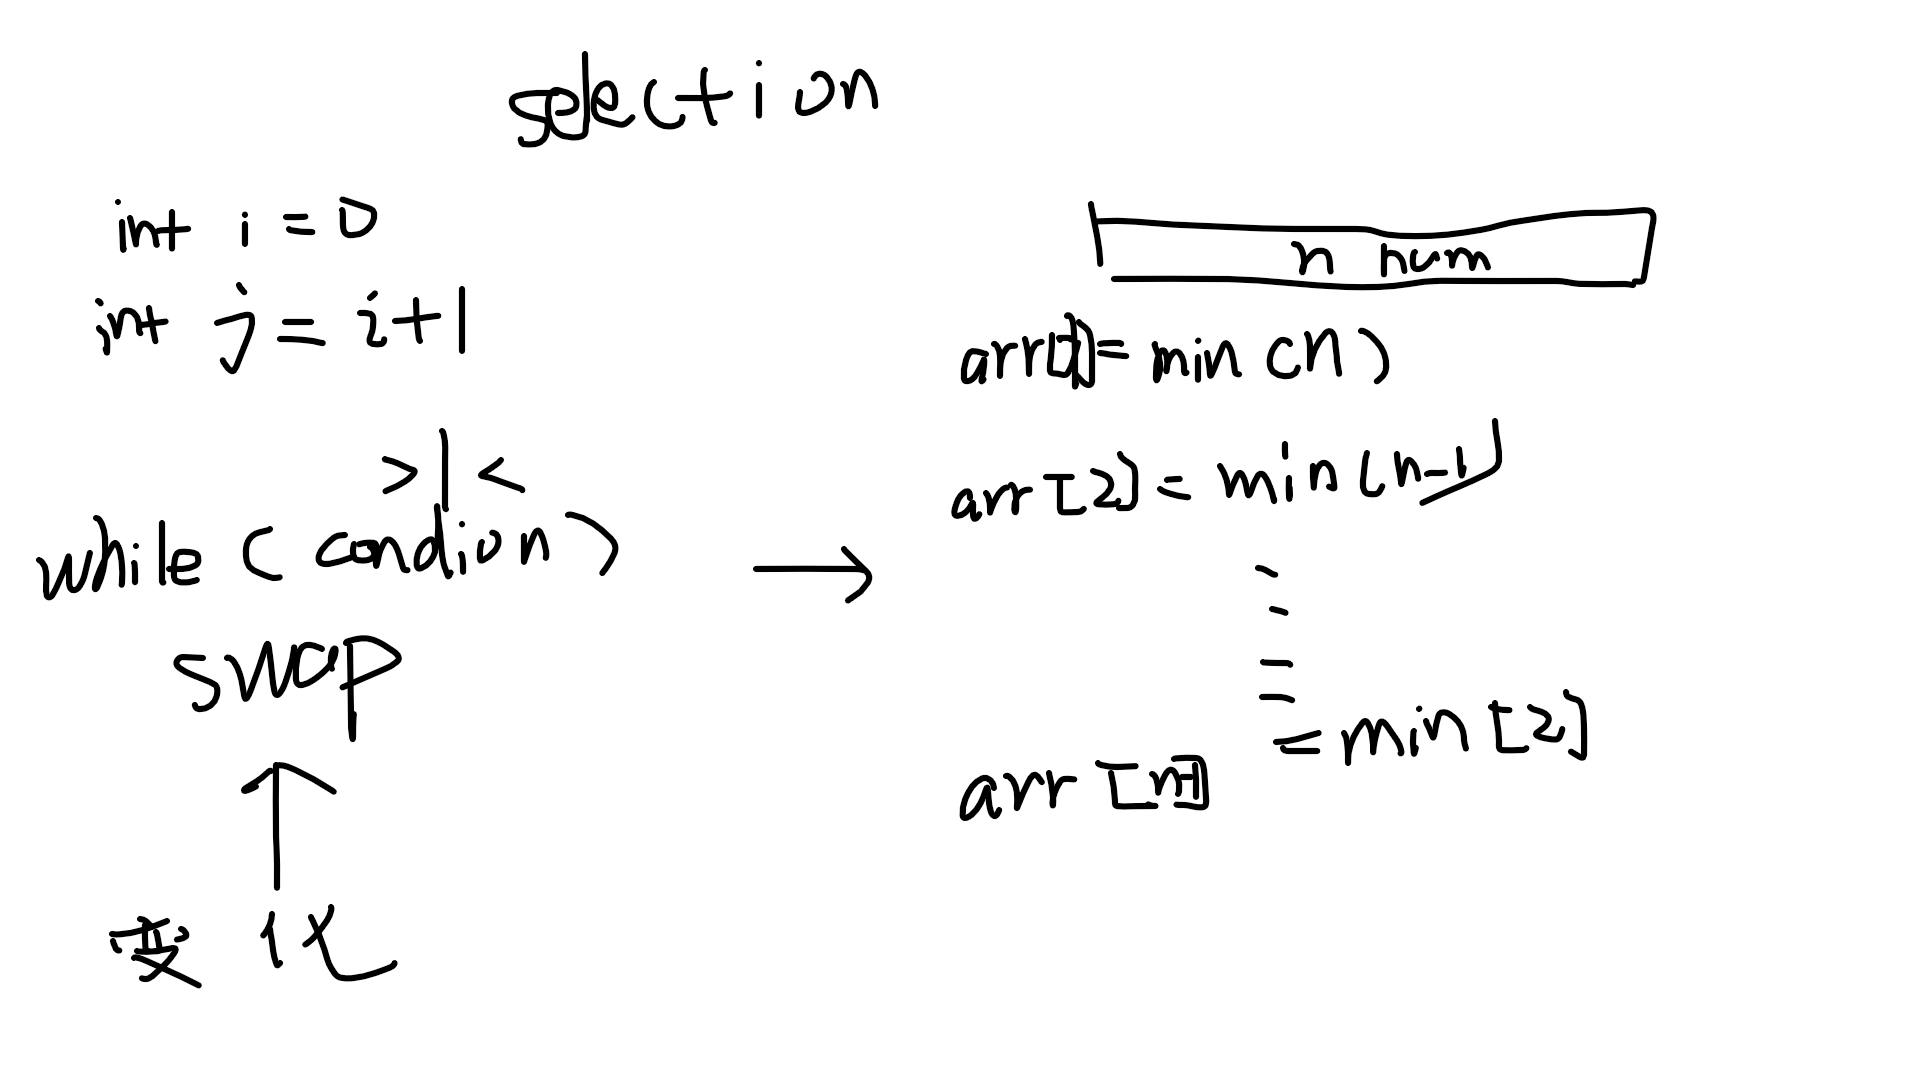 selection
int i = 0
int j = i+1
> | <
while ( condion )
swap
变化
n num
arr[1]= min (n)
arr [2] = min (n-1)
= min [2]
arr [n-1]